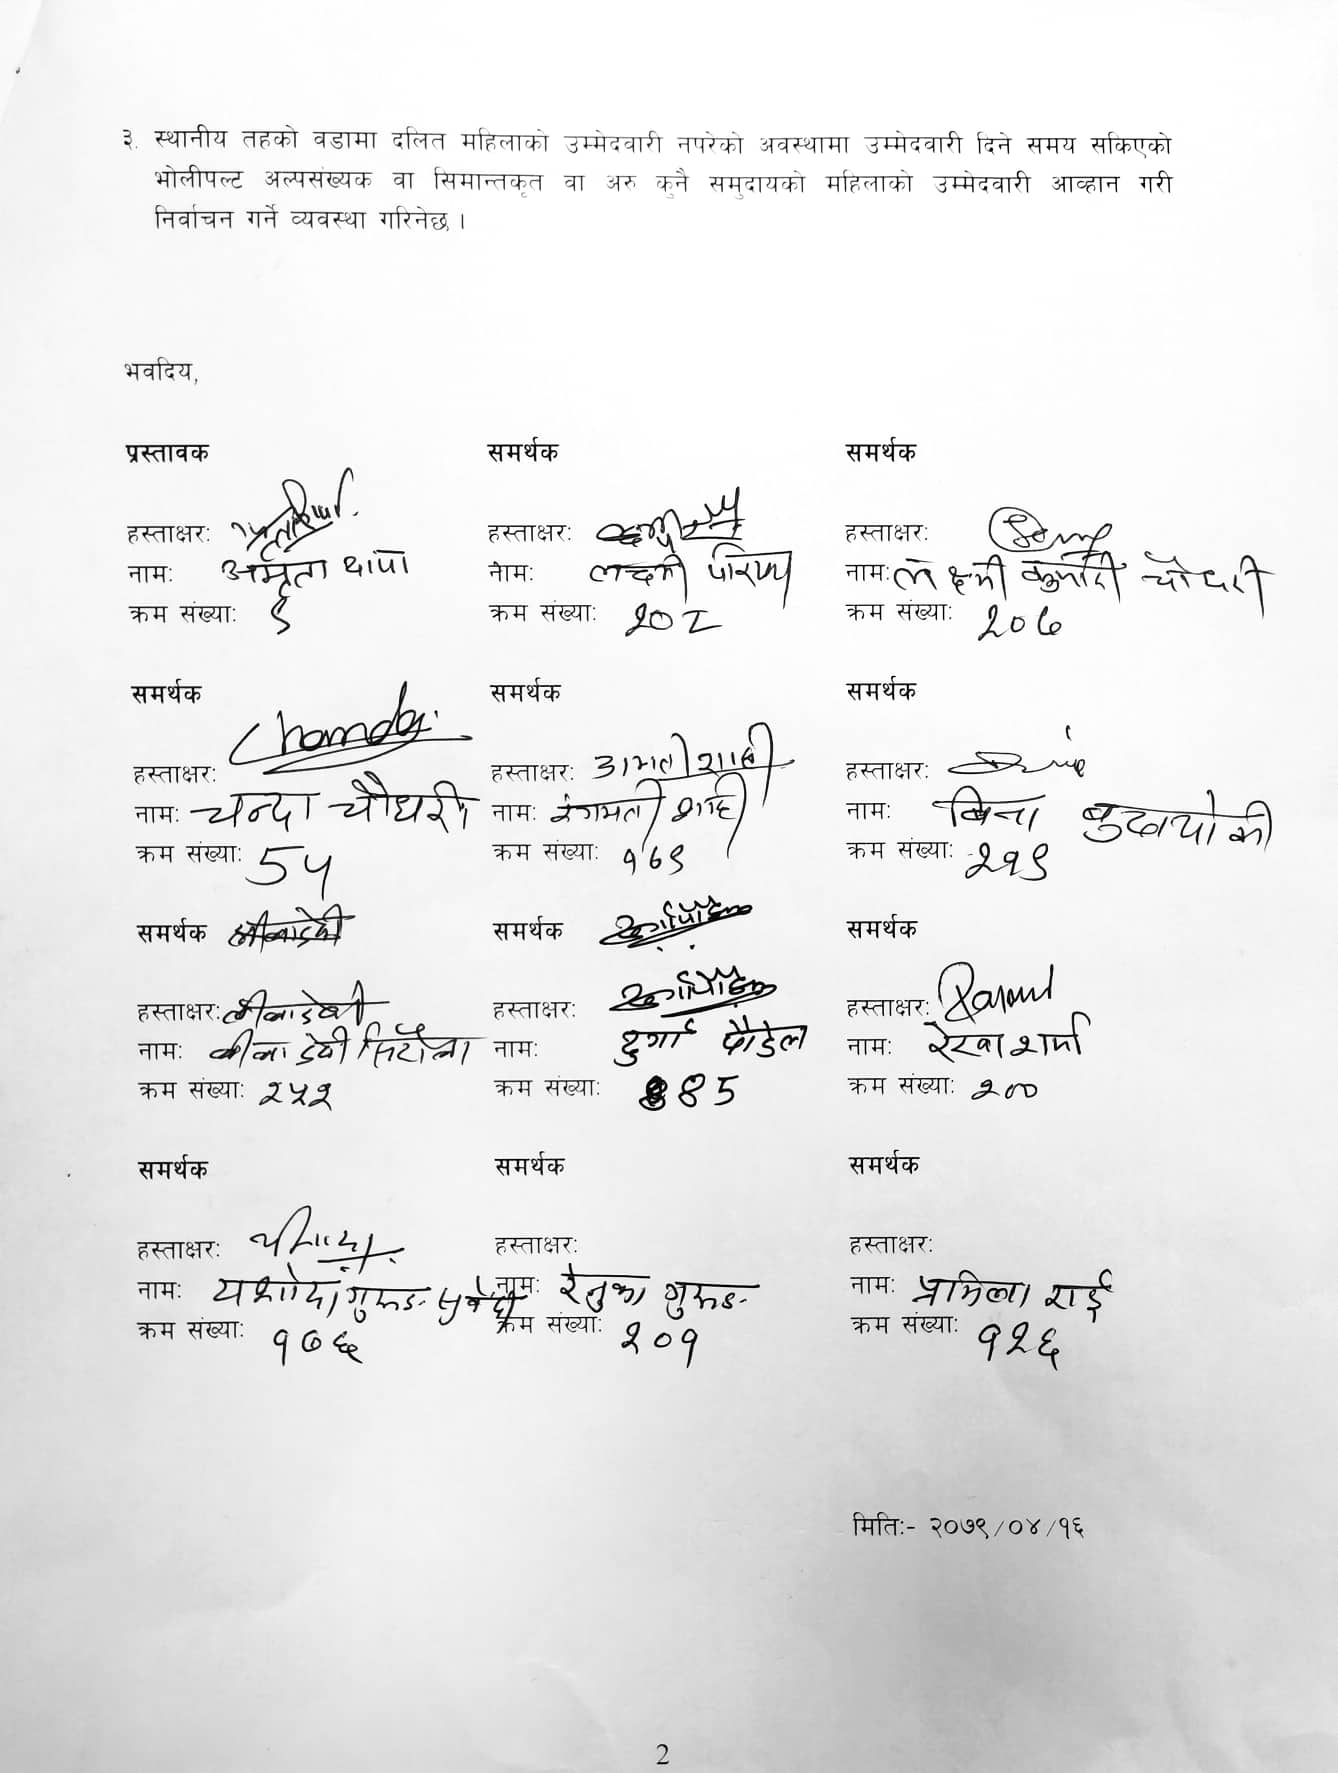 ३. स्थानीय तहको वडामा दलित महिलाको उम्मेदवारी नपरेको अवस्थामा उम्मेदवारी दिने समय सकिएको
भोलीपल्ट अल्पसंख्यक वा सिमान्तकृत वा अरु कुनै समुदायको महिलाको उम्मेदवारी आव्हान गरी
निर्वाचन गर्ने व्यवस्था गरिनेछ ।
भवदिय,
प्रस्तावक समर्थक समर्थक
हस्ताक्षर: हस्ताक्षर: हस्ताक्षर:
नाम: अमृता थापा नाम: लक्ष्मी परियार नाम: लक्ष्मी कुमारी चौधरी
क्रम संख्या: ९ क्रम संख्या: २०८ क्रम संख्या: २०७
समर्थक समर्थक समर्थक
हस्ताक्षर: हस्ताक्षर: हस्ताक्षर:
नाम: चन्दा चौधरी नाम: रंगमती शाही नाम: बिना
क्रम संख्या: 5५ क्रम संख्या: १७९ क्रम संख्या: २१९
समर्थक समर्थक समर्थक
हस्ताक्षर: लीलादेवी हस्ताक्षर: हस्ताक्षर:
नाम: लीला देवी सिटौला नाम: दुर्गा पौडेल नाम: रेखा शर्मा
क्रम संख्या: २५२ क्रम संख्या: 85 क्रम संख्या: २००
समर्थक समर्थक समर्थक
हस्ताक्षर: यशोदा हस्ताक्षर: हस्ताक्षर:
नाम: यशोदा गुरुङ सुवेदी नाम: रेनुका गुरुङ नाम: प्रमिला राई
क्रम संख्या: १७६ क्रम संख्या: २०१ क्रम संख्या: १२६
मिति:- २०७९/०४/१६
2